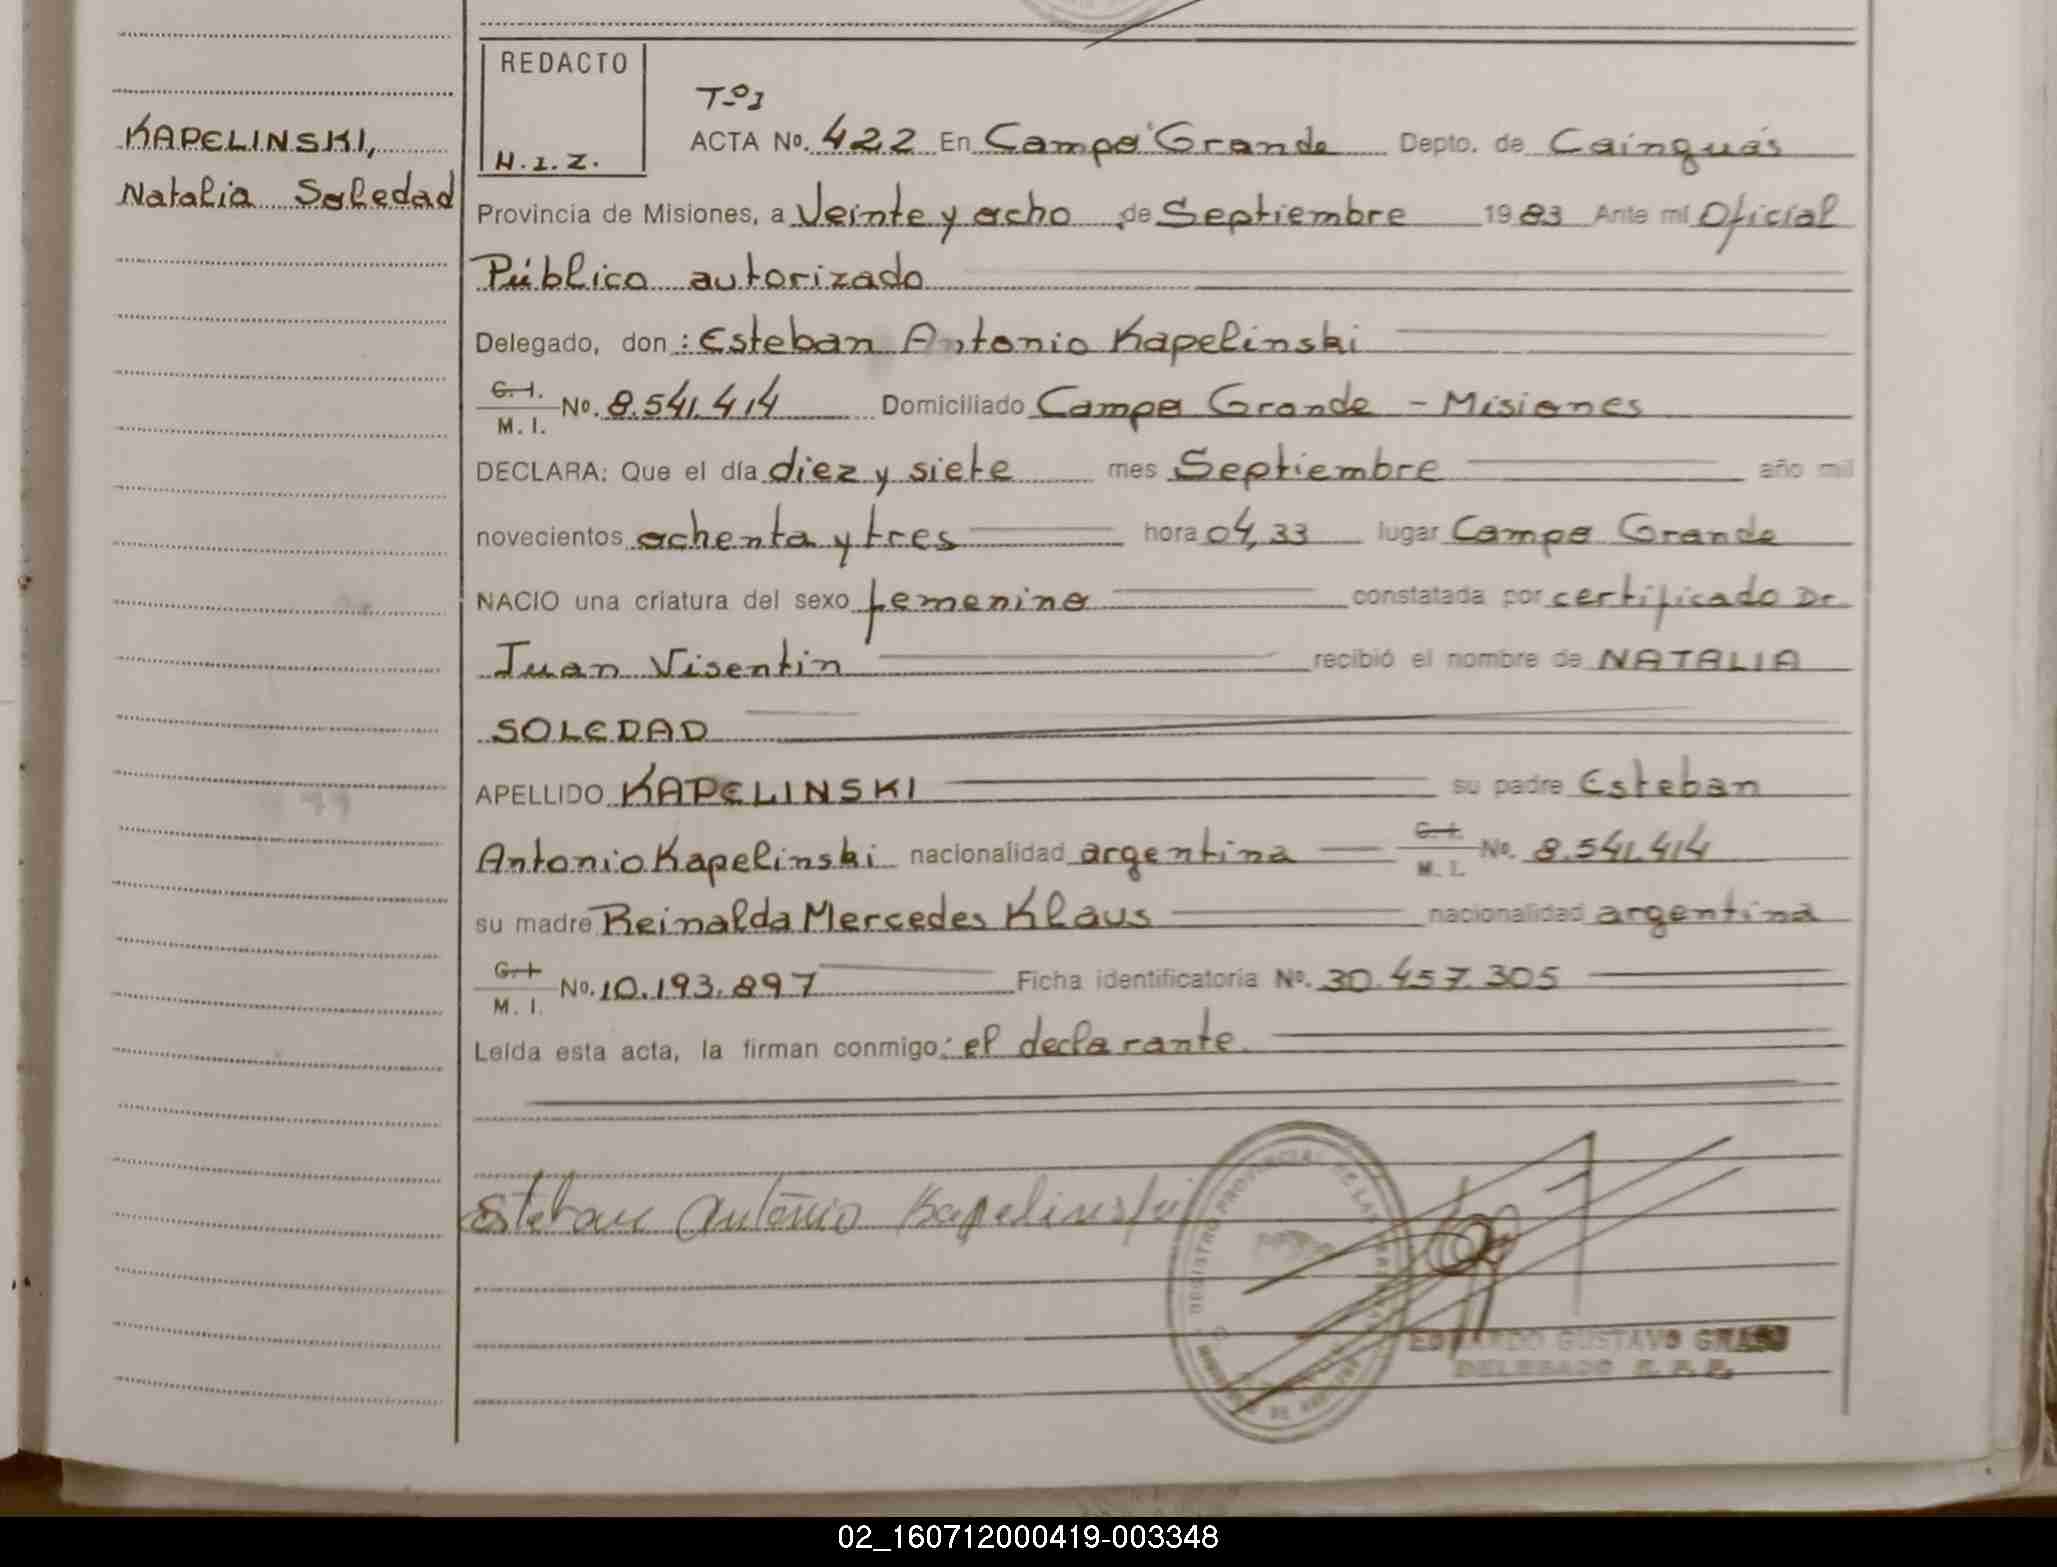 REDACTO
H.I.Z.
KAPELINSKI,
Natalia Soledad
Tº1
ACTA Nº. 422 En Campo Grande Depto. de Cainguás
Provincia de Misiones, a Veinte y ocho de Septiembre 1983 Ante mí Oficial
Público autorizado
Delegado, don: Esteban Antonio Kapelinski
C. I. M. I. Nº. 8.541.414 Domiciliado Campo Grande - Misiones
DECLARA: Que el día diez y siete mes Septiembre año mil
novecientos ochenta y tres hora 04,33 lugar Campo Grande
NACIO una criatura del sexo femenino constatada por certificado Dr.
Juan Visentin recibió el nombre de NATALIA
SOLEDAD
APELLIDO KAPELINSKI su padre Esteban
Antonio Kapelinski nacionalidad argentina C. I. M. I. Nº. 8.541.414
su madre Reinalda Mercedes Klaus nacionalidad argentina
C. I. M. I. Nº. 10.193.897 Ficha identificatoria Nº. 30.457.305
Leída esta acta, la firman conmigo: el declarante.
Esteban Antonio Kapelinski
REGISTRO PROVINCIAL DE LAS
EDUARDO GUSTAVO
DELEGADO
02_160712000419-003348